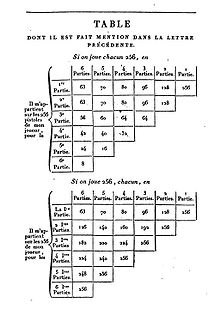 TABLE
DONT IL EST FAIT MENTION DANS LA LETTRE
PRÉCÉDENTE.
Si on joue chacun 256, en
6 5 4 3 2 1
Parties. Parties. Parties. Parties. Parties. Partie.
Il m'appartient sur les 256 pistoles de mon joueur, pour la
1re Partie. 63 70 80 96 128 256
2e Partie. 63 70 80 96 128
3e Partie. 56 60 64 64
4e Partie. 42 40 32
5e Partie. 24 16
6e Partie. 8
Si on joue 256, chacun, en
6 5 4 3 2 1
Parties. Parties. Parties. Parties. Parties. Partie.
Il m'appartient sur les 256 de mon joueur, pour les
La 1re Partie. 63 70 80 96 128 256
2 1res Parties. 126 140 160 192 256
3 1res Parties. 182 200 224 256
4 1res Parties. 224 240 256
5 1res Parties. 248 256
6 1res Parties. 256